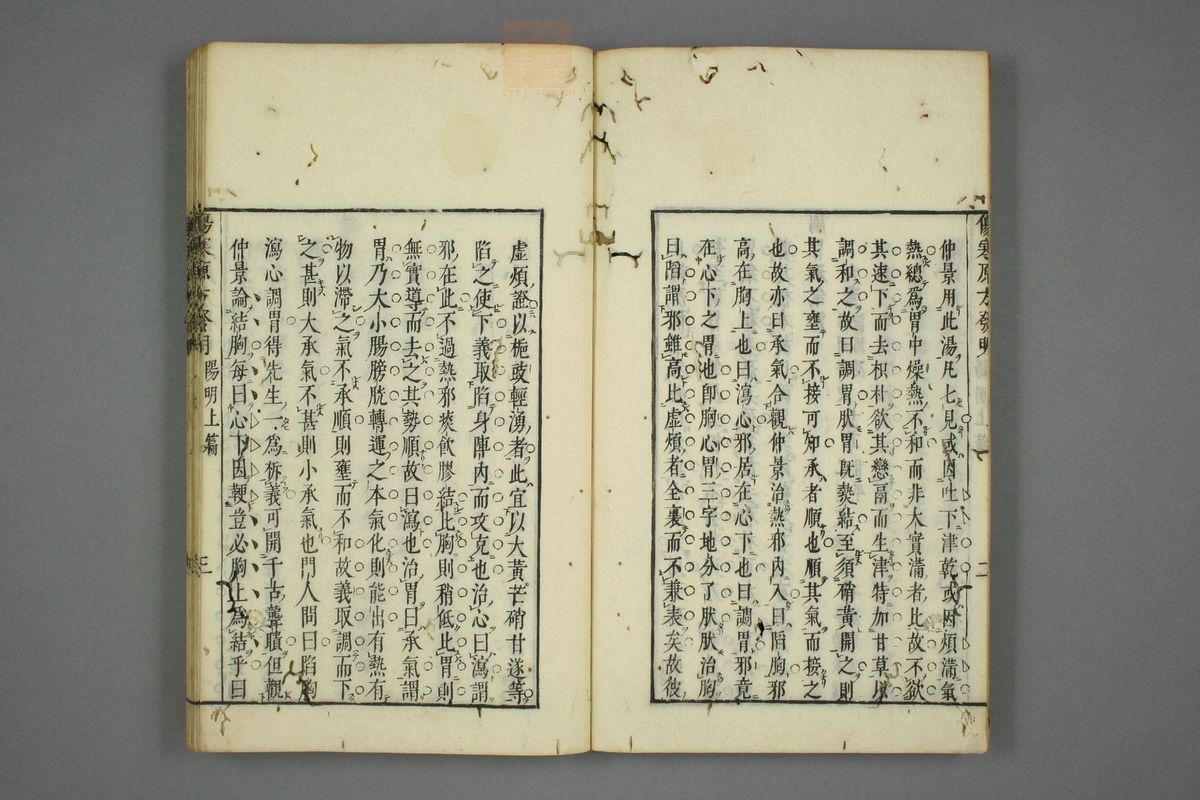 傷寒原方發明
二
仲景用此湯凡七見或因吐下津乾或因煩滿氣
熱總爲胃中燥熱不和而非大實滿者比故不欲
其速下而去枳朴欲其戀鬲而生津特加甘草以
調和之故曰調胃肰胃既熱結至須硝黃開之則
其氣之壅而不接可知承者順也順其氣而接之
也故亦曰承氣合觀仲景治熱邪內入曰陷胸邪
高在胸上也曰瀉心邪居在心下也曰調胃邪竟
在心下之胃也卽胸心胃三字地分了肰肰治胸
曰陷謂邪雖高比虛煩者全裏而不兼表矣故彼
虛煩證以梔豉輕湧者此宜以大黃芒硝甘遂等
陷之使下義取陷身陣內而攻克也治心曰瀉謂
邪在此不過熱邪痰飮膠結比胸則稍低比胃則
無實導而去之其勢順故曰瀉也治胃曰承氣謂
胃乃大小腸膀胱轉運之本氣化則能出有熱有
物以滯之氣不承順則壅而不和故義取調而下
之甚則大承氣不甚則小承氣也門人問曰陷胸
瀉心調胃得先生一一爲析義可開千古聾聵但觀
仲景論結胸每曰心下因鞕豈必胸上爲結乎曰
傷寒原方發明 陽明上篇
三